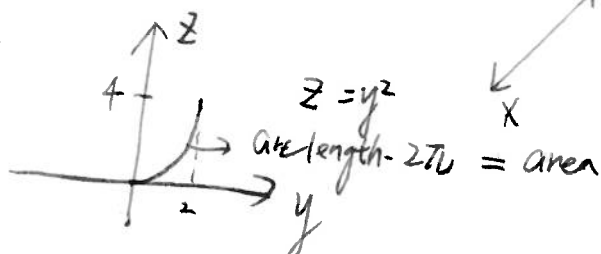 z
4
z = y²
x
arc length · 2π = area
2
y